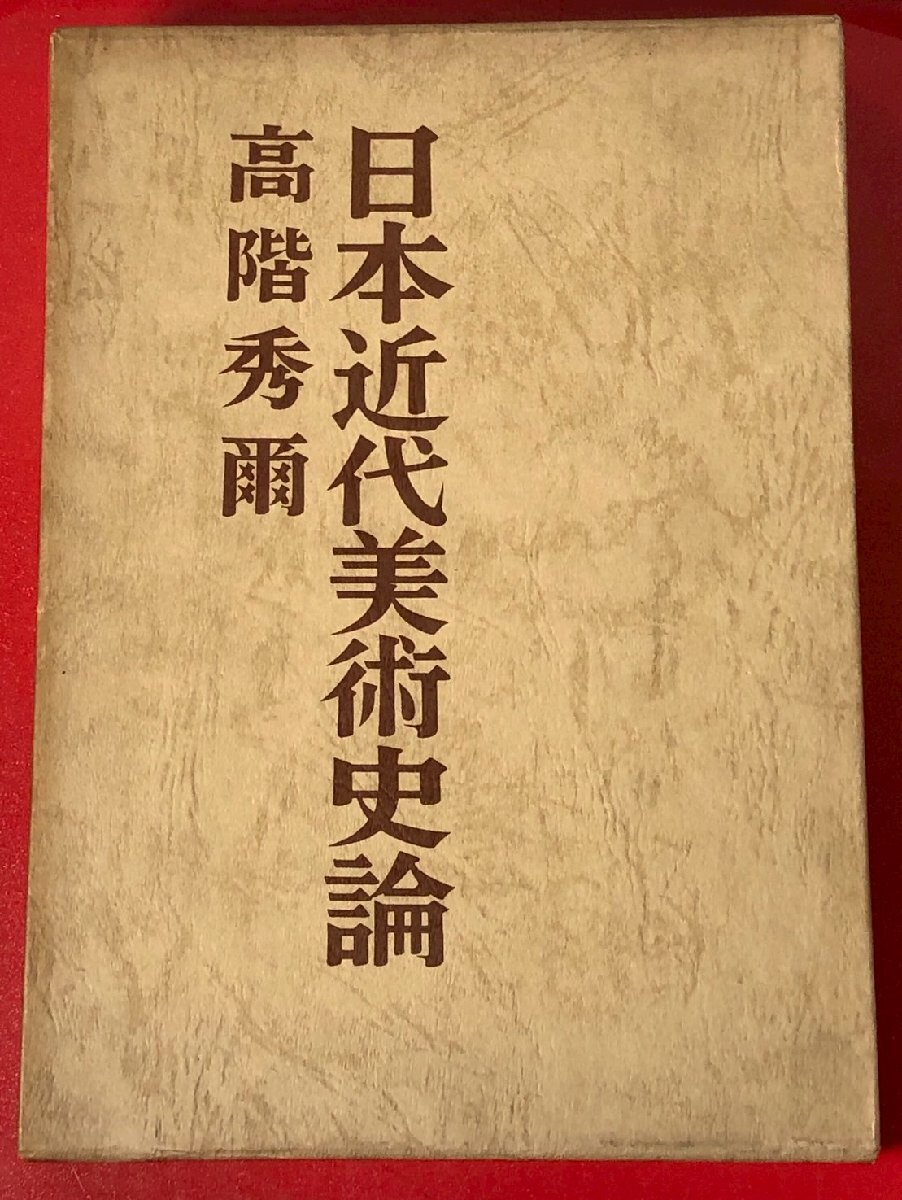 日本近代美術史論
高階秀爾